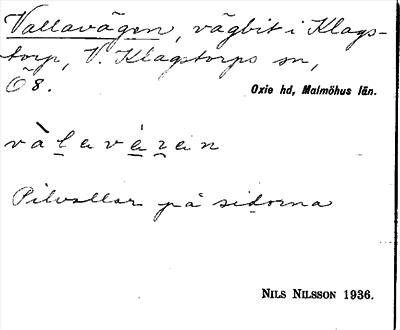 Vallavägen, vägbit i Klags-
torp, V. Klagstorps sn,
Ö8.
Oxie hd, Malmöhus län.
Pilvallar på sidorna
NILS NILSSON 1936.